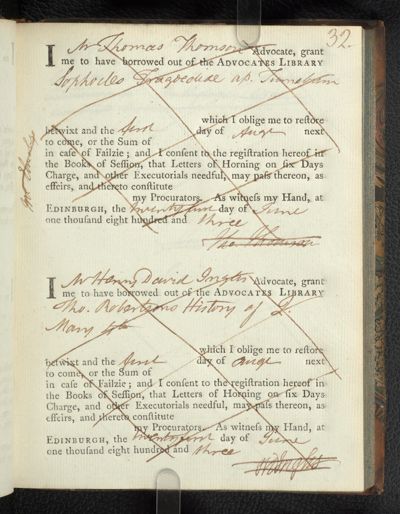 32.
I Mr Thomas Thomson Advocate, grant
me to have borrowed out of the ADVOCATES LIBRARY
Sophocles Tragoediae ap. Turnebum
which I oblige me to reſtore
betwixt and the first day of Augt next
to come, or the Sum of
in caſe of Failzie; and I conſent to the regiſtration hereof in
the Books of Seſſion, that Letters of Horning on ſix Days
Charge, and other Executorials needful, may paſs thereon, as
effeirs, and thereto conſtitute
my Procurators. As witneſs my Hand, at
EDINBURGH, the twentyfirst day of June
one thouſand eight hundred and three
Tho Thomson
I Mr Henry David Inglis Advocate, grant
me to have borrowed out of the ADVOCATES LIBRARY
Tho. Robertsons History of Q.
Mary 4to
which I oblige me to reſtore
betwixt and the first day of Augt next
to come, or the Sum of
in caſe of Failzie; and I conſent to the regiſtration hereof in
the Books of Seſſion, that Letters of Horning on ſix Days
Charge, and other Executorials needful, may paſs thereon, as
effeirs, and thereto conſtitute
my Procurators. As witneſs my Hand, at
EDINBURGH, the twentyfirst day of June
one thouſand eight hundred and three
HD Inglis